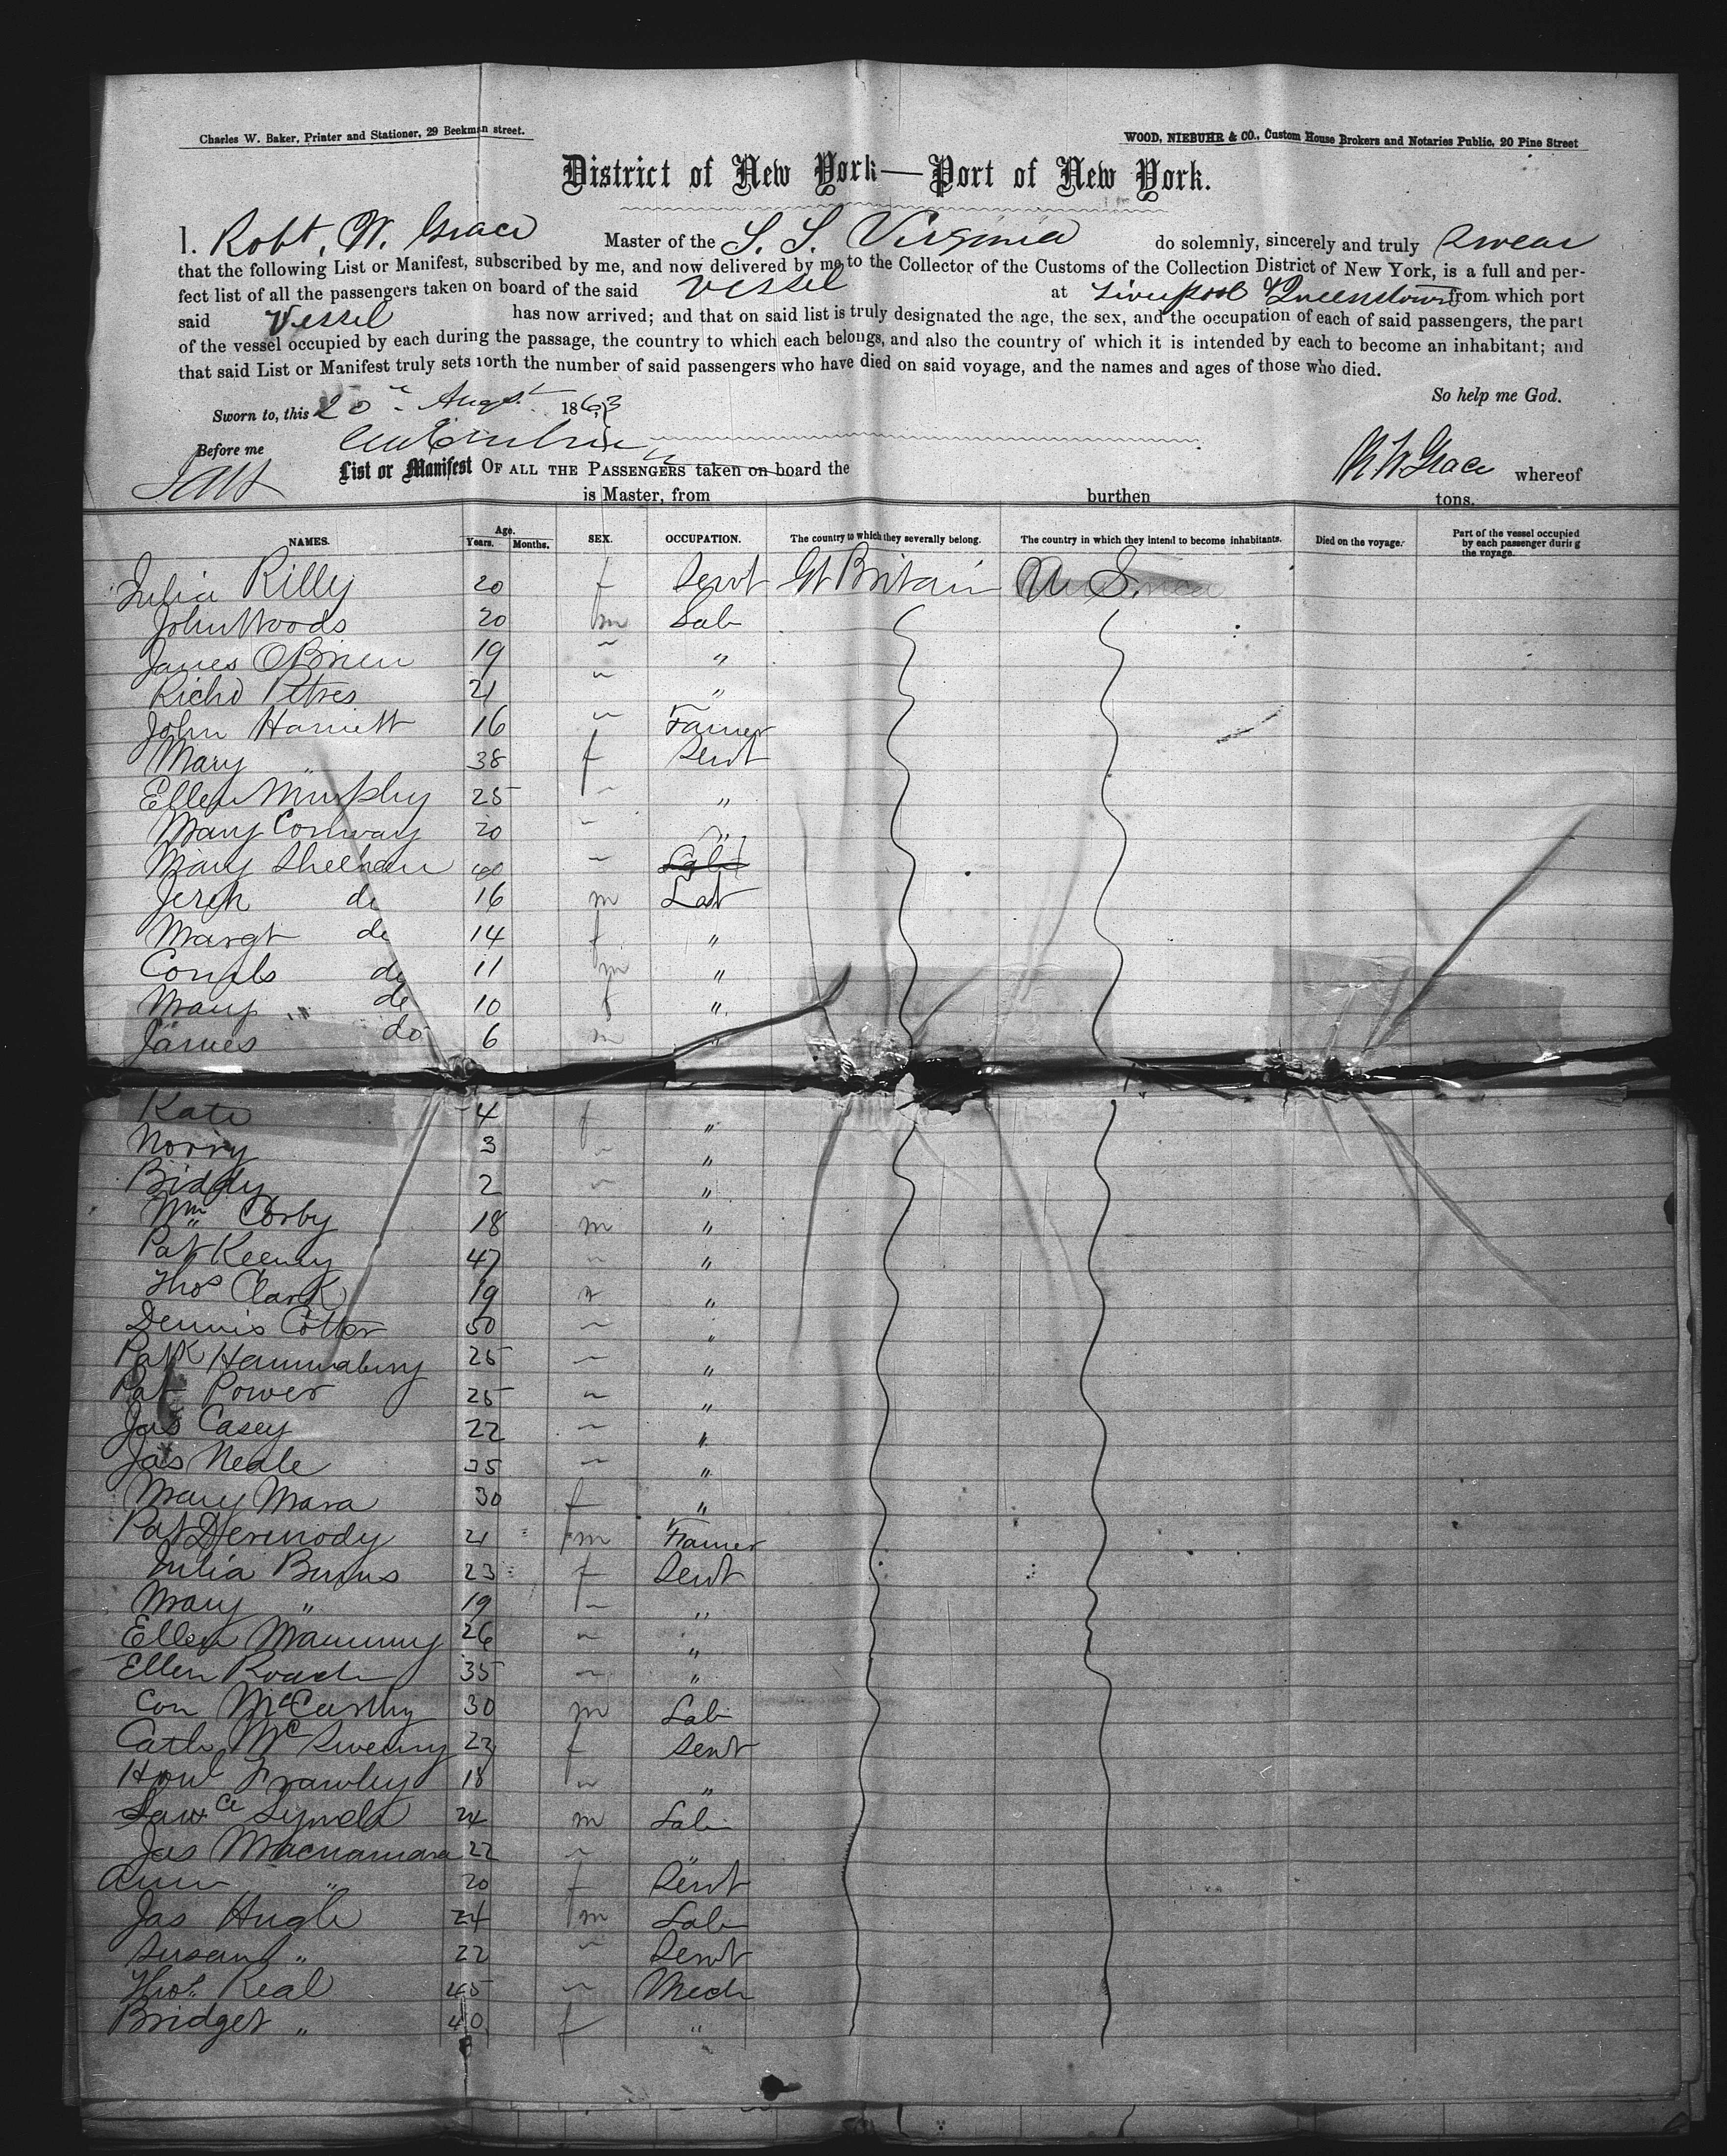 Charles W. Baker, Printer and Stationer, 29 Beekman street.
WOOD, NIEBUHR & CO., Custom House Brokers and Notaries Public, 20 Pine Street
District of New York—Port of New York.
I. Robt. W. Grace Master of the S. S. Virginia do solemnly, sincerely and truly swear
that the following List or Manifest, subscribed by me, and now delivered by me to the Collector of the Customs of the Collection District of New York, is a full and per-
fect list of all the passengers taken on board of the said Vessel at Liverpool & Queenstown from which port
said Vessel has now arrived; and that on said list is truly designated the age, the sex, and the occupation of each of said passengers, the part
of the vessel occupied by each during the passage, the country to which each belongs, and also the country of which it is intended by each to become an inhabitant; and
that said List or Manifest truly sets forth the number of said passengers who have died on said voyage, and the names and ages of those who died.
So help me God.
Sworn to, this 20 Augst 1863
Before me
R W Grace whereof
List or Manifest OF ALL THE PASSENGERS taken on board the
is Master, from burthen tons.
NAMES. Age. Years. Months. SEX. OCCUPATION. The country to which they severally belong. The country in which they intend to become inhabitants. Died on the voyage. Part of the vessel occupied by each passenger during the voyage.
Julia Rilly 20 f Servt Gt Britain U S.
John Woods 20 m Lab
James OBrien 19 " "
Richd Petres 21 " "
John Harnett 16 " Farmer
Mary " 38 f Servt
Ellen Murphy 25 " "
Mary Conway 20 " "
Mary Sheehan 40 "
Jereh do 16 m Lab
Margt do 14 f "
Cornls do 11 m "
Mary do 10 f "
James do 6 m "
Kate 4 f "
Norry 3 " "
Biddy 2 " "
Wm Corby 18 m "
Pat Keeny 47 " "
Thos Clark 19 "
Dennis Cotter 50 " "
Patk 25 " "
Pat Power 25 " "
Jas Casey 22 " "
Jas Neale 35 " "
Mary Mara 30 f "
Pat Dermody 21 m Farmer
Julia Burns 23 f Servt
Mary " 19 " "
Ellen 26 " "
Ellen Roach 35 " "
Con McCarthy 30 m Lab
Cath McSweeny 23 f Servt
Frawley 18 " "
Lawce Lynch 24 m Lab
Jas Macnamara 22 " "
Ann " 20 f Servt
Jas Hugh 24 m Lab
Susan " 22 " Servt
Thos Real 45 " Mech
Bridget " 40 f "